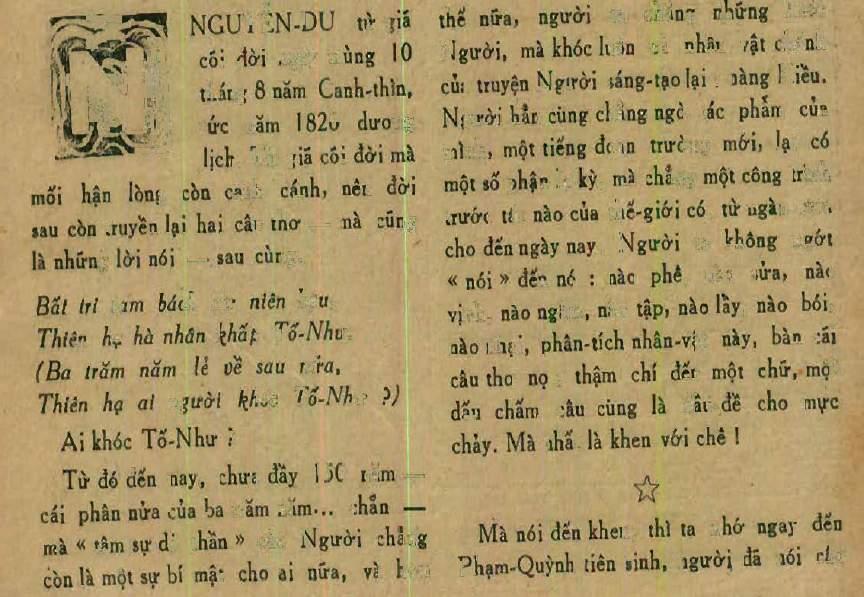 NGUYỄN-DU từ giã
cõi đời ngày mùng 10
tháng 8 năm Canh-thìn,
tức năm 1820 dương
lịch. giã cõi đời mà
mối hận lòng còn canh cánh, nên đời
sau còn truyền lại hai câu thơ — mà cũng
là những lời nói — sau cùng
Bất tri tam bách dư niên hậu
Thiên hạ hà nhân khấp Tố-Như.
(Ba trăm năm lẻ về sau nữa,
Thiên hạ ai người khóc Tố-Như ?)
Ai khóc Tố-Như ?
Từ đó đến nay, chưa đầy 150 năm —
cái phân nửa của ba trăm năm... chẵn —
mà « tâm sự » Người chẳng
còn là một sự bí mật cho ai nữa, và
thế nữa, người chẳng những
Người, mà khóc luôn nhân vật chính
của truyện Người sáng-tạo lại : nàng Kiều.
Người hẳn cũng chẳng ngờ tác phẩm của
mình, một tiếng đoạn trường mới, lại có
một số phận kỳ mà chẳng một công trình
trước tác nào của thế-giới có từ ngàn
cho đến ngày nay Người không ngớt
« nói » đến nó : nào phê sửa, nào
vịnh nào ngâm, nào tập, nào lẩy nào bói
nào nhại, phân-tích nhân-vật này, bàn cãi
câu thơ nọ thậm chí đến một chữ, một
dấu chấm câu cũng là đầu đề cho mực
chảy. Mà nhất là khen với chê !
Mà nói đến khen thì ta nhớ ngay đến
Phạm-Quỳnh tiên sinh, người đã nói